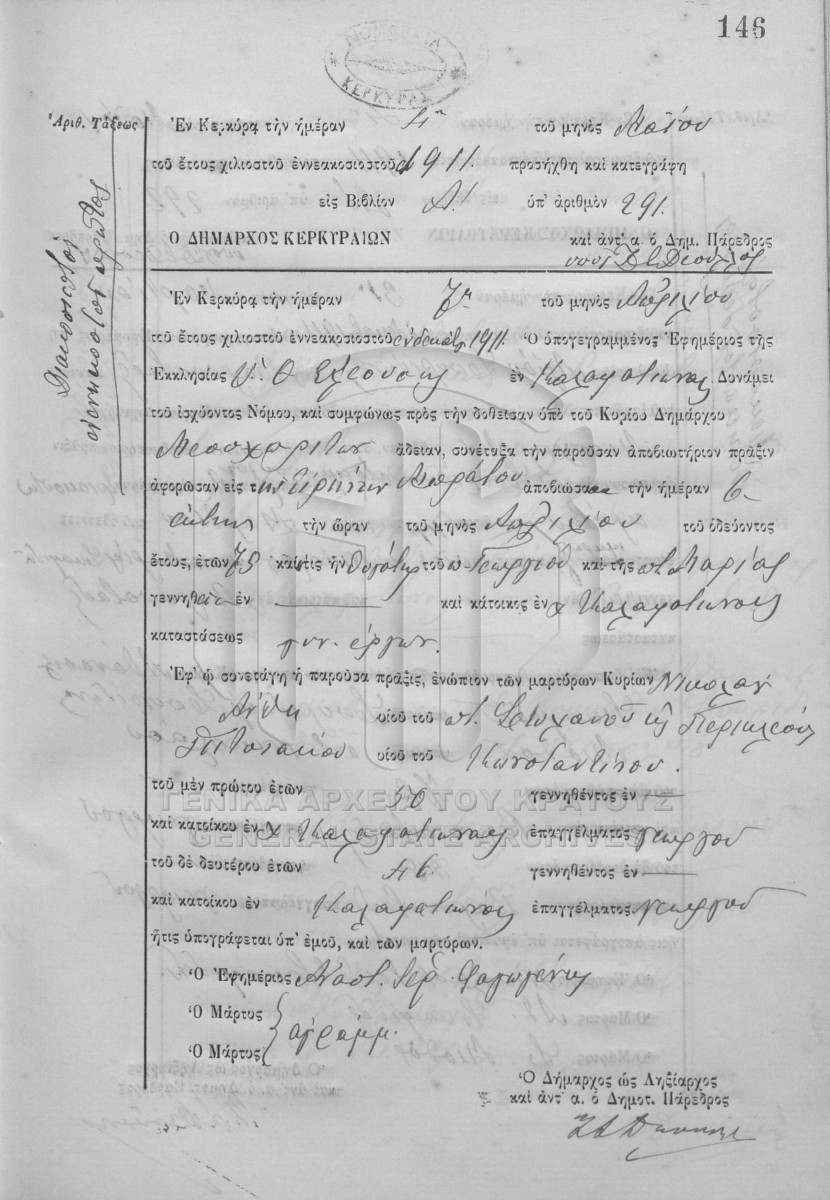 146
ΚΕΡΚΥΡΑΣ
Ἀριθ. Τάξεως
Διακοσιοστὸν
ἐνενηκοστὸν πρῶτον
Ἐν Κερκύρᾳ τὴν ἡμέραν 4η τοῦ μηνὸς Μαΐου
τοῦ ἔτους χιλιοστοῦ ἐννεακοσιοστοῦ 1911. προσήχθη καὶ κατεγράφη
εἰς Βιβλίον Α! ὑπ' ἀριθμὸν 291.
Ο ΔΗΜΑΡΧΟΣ ΚΕΡΚΥΡΑΙΩΝ καὶ ἀντ' α. ὁ Δημ. Πάρεδρος
Ἐν Κερκύρᾳ τὴν ἡμέραν 7η τοῦ μηνὸς Ἀπριλίου
τοῦ ἔτους χιλιοστοῦ ἐννεακοσιοστοῦ ἑνδεκάτου 1911. Ὁ ὑπογεγραμμένος Ἐφημέριος τῆς
Ἐκκλησίας Υ. Θ. Ἐλεούσης ἐν Καλαφατιώναις Δυνάμει
τοῦ ἰσχύοντος Νόμου, καὶ συμφώνως πρὸς τὴν δοθεῖσαν ὑπὸ τοῦ Κυρίου Δημάρχου
Μεσοχωριτῶν ἄδειαν, συνέταξα τὴν παροῦσαν ἀποβιωτήριον πρᾶξιν
ἀφορῶσαν εἰς τὴν Εἰρήνην ἀποβιώσασαν τὴν ἡμέραν 6
τὴν ὥραν τοῦ μηνὸς Ἀπριλίου τοῦ ὁδεύοντος
ἔτους, ἐτῶν 75 καὶ ἥτις ἦν θυγάτηρ τοῦ π. Γεωργίου καὶ τῆς π. Μαρίας
γεννηθεῖσα ἐν — καὶ κάτοικος ἐν χ Καλαφατιώναις
καταστάσεως
Ἐφ' ᾧ συνετάγη ἡ παροῦσα πρᾶξις, ἐνώπιον τῶν μαρτύρων Κυρίων Νικολάου
υἱοῦ τοῦ π. Στυλιανοῦ κ Περικλέους
υἱοῦ τοῦ Κωνσταντίνου.
τοῦ μὲν πρώτου ἐτῶν 50 γεννηθέντος ἐν —
ΓΕΝΙΚΑ ΑΡΧΕΙΑ ΤΟΥ ΚΡΑΤΟΥΣ
καὶ κατοίκου ἐν χ Καλαφατιώναις ἐπαγγέλματος γεωργοῦ
GENERAL STATE ARCHIVES
τοῦ δὲ δευτέρου ἐτῶν 46 γεννηθέντος ἐν —
καὶ κατοίκου ἐν Καλαφατιώναις ἐπαγγέλματος γεωργοῦ
ἥτις ὑπογράφεται ὑπ' ἐμοῦ, καὶ τῶν μαρτύρων.
Ὁ Ἐφημέριος
Ὁ Μάρτυς
ἀγράμμ.
Ὁ Μάρτυς
Ὁ Δήμαρχος ὡς Ληξίαρχος
καὶ ἀντ' α. ὁ Δημοτ. Πάρεδρος